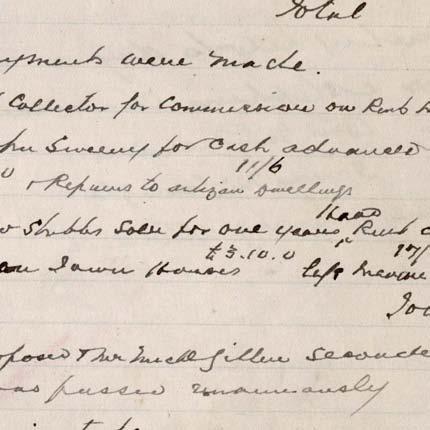 Total
yments were made.
Collector for Commission on Rent
Sweeny for Cash advanced
11/6
0 & Repairs to artizan Dwellings
Head
Stubbs Solr for one years Rent
£3.10.0 17/
an Town Houses less Income
To
posed & Mr Michl Gillen Seconde
was passed unanimously